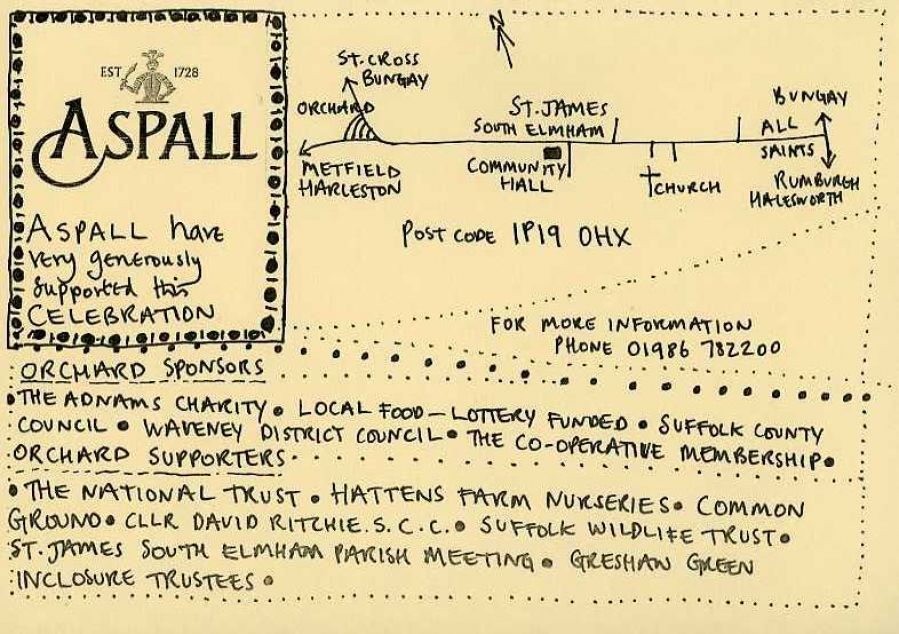 EST 1728
ASPALL
ASPALL have
very generously
supported this
CELEBRATION
N
ST. CROSS
BUNGAY
ORCHARD
METFIELD
HARLESTON
ST. JAMES
SOUTH ELMHAM
COMMUNITY
HALL
CHURCH
BUNGAY
ALL
SAINTS
RUMBURGH
HALESWORTH
POST CODE IP19 0HX
FOR MORE INFORMATION
PHONE 01986 782200
ORCHARD SPONSORS
• THE ADNAMS CHARITY • LOCAL FOOD – LOTTERY FUNDED • SUFFOLK COUNTY
COUNCIL • WAVENEY DISTRICT COUNCIL • THE CO-OPERATIVE MEMBERSHIP •
ORCHARD SUPPORTERS
• THE NATIONAL TRUST • HATTENS FARM NURSERIES • COMMON
GROUND • CLLR DAVID RITCHIE. S.C.C. • SUFFOLK WILDLIFE TRUST •
ST. JAMES SOUTH ELMHAM PARISH MEETING • GRESHAW GREEN
INCLOSURE TRUSTEES •